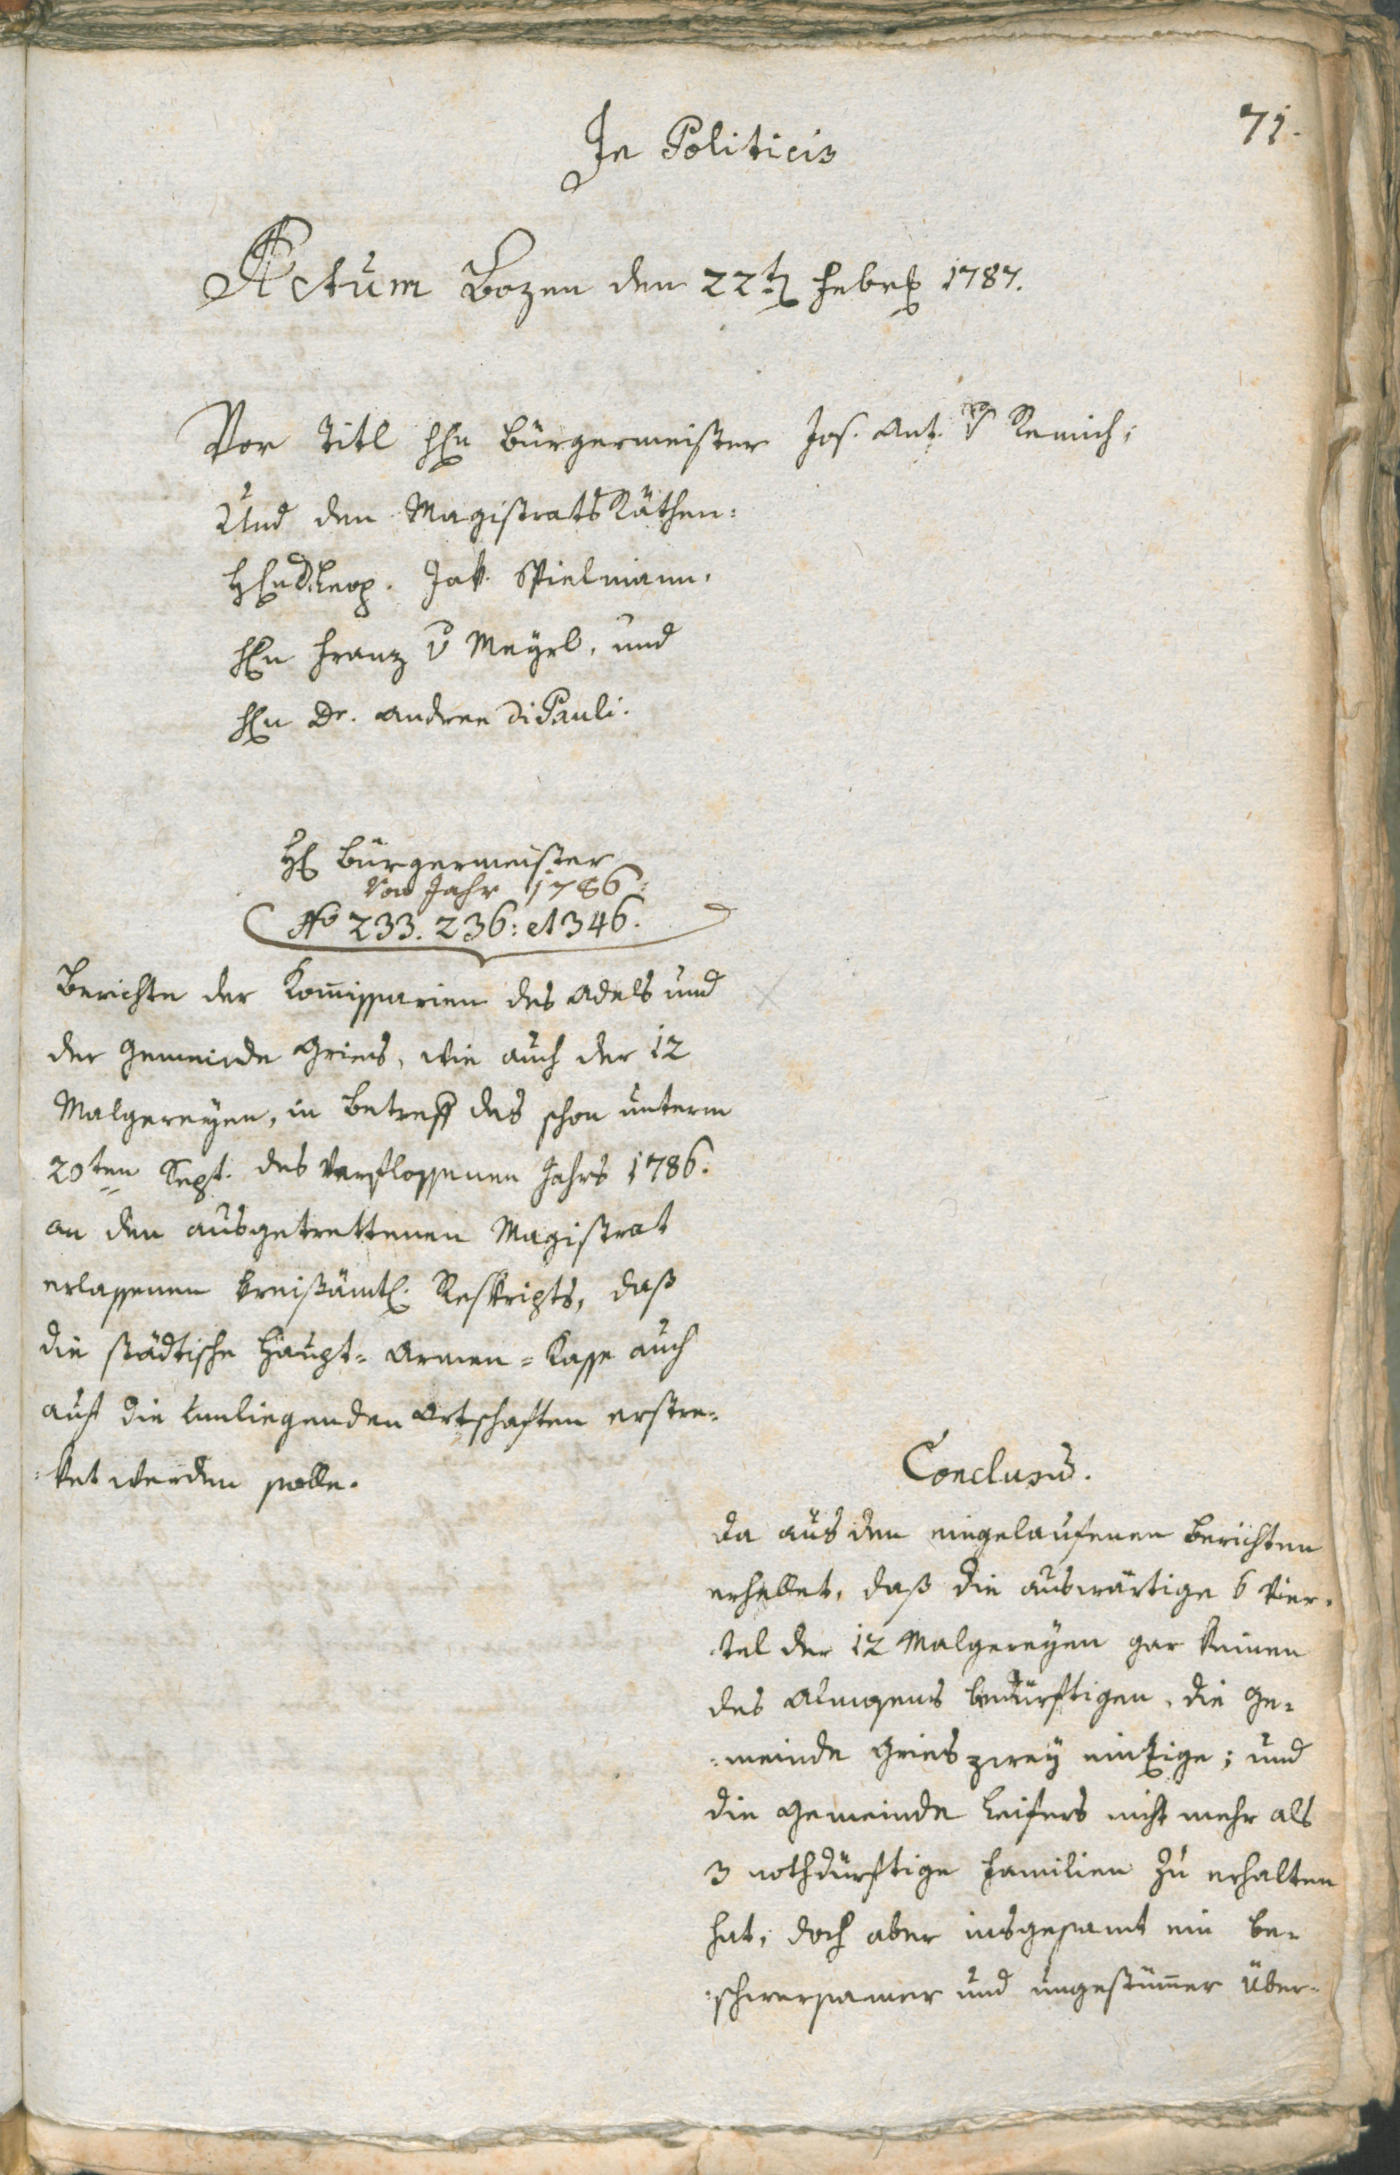 71.
In Politicis
Actum Bozen den 22t. Febr. 1787.
Vor Titl Hn Bürgermeister Jos. Ant. v Remich;
Und den Magistrats Räthen:
Hn D. Leop. Jak. Spielmann.
Hn Franz v Mayrl, und
Hn Dr. Andree Di Pauli.
H. Bürgermeister
Von Jahr 1786:
No 233. 236: et 346.
Berichte der Kom̅issarien des Adels und
der Gemeinde Gries, wie auch der 12
Malgereyen, in Betreff des schon unterm
20ten Sept. des Verflossenen Jahrs 1786.
an den ausgetrettenen Magistrat
erlassenen kreißämtl. Reskripts, daß
die städtische Haupt-Armen-Kasse auch
auf die Umliegenden Ortschaften erstre-
:ket werden solle.
Conclusum.
Da aus den eingelaufenen Berichten
erhellet, daß die auswärtige 6 Vier-
:tel der 12 Malgereyen gar keinen
des Almosens bedürftigen, die Ge-
:meinde Gries zwey einzige; und
die Gemeinde Leifers nicht mehr als
3 nothdürftige Familien zu erhalten
hat; doch aber insgesamt ein be-
:schwersamer und ungestüm̅er Über-